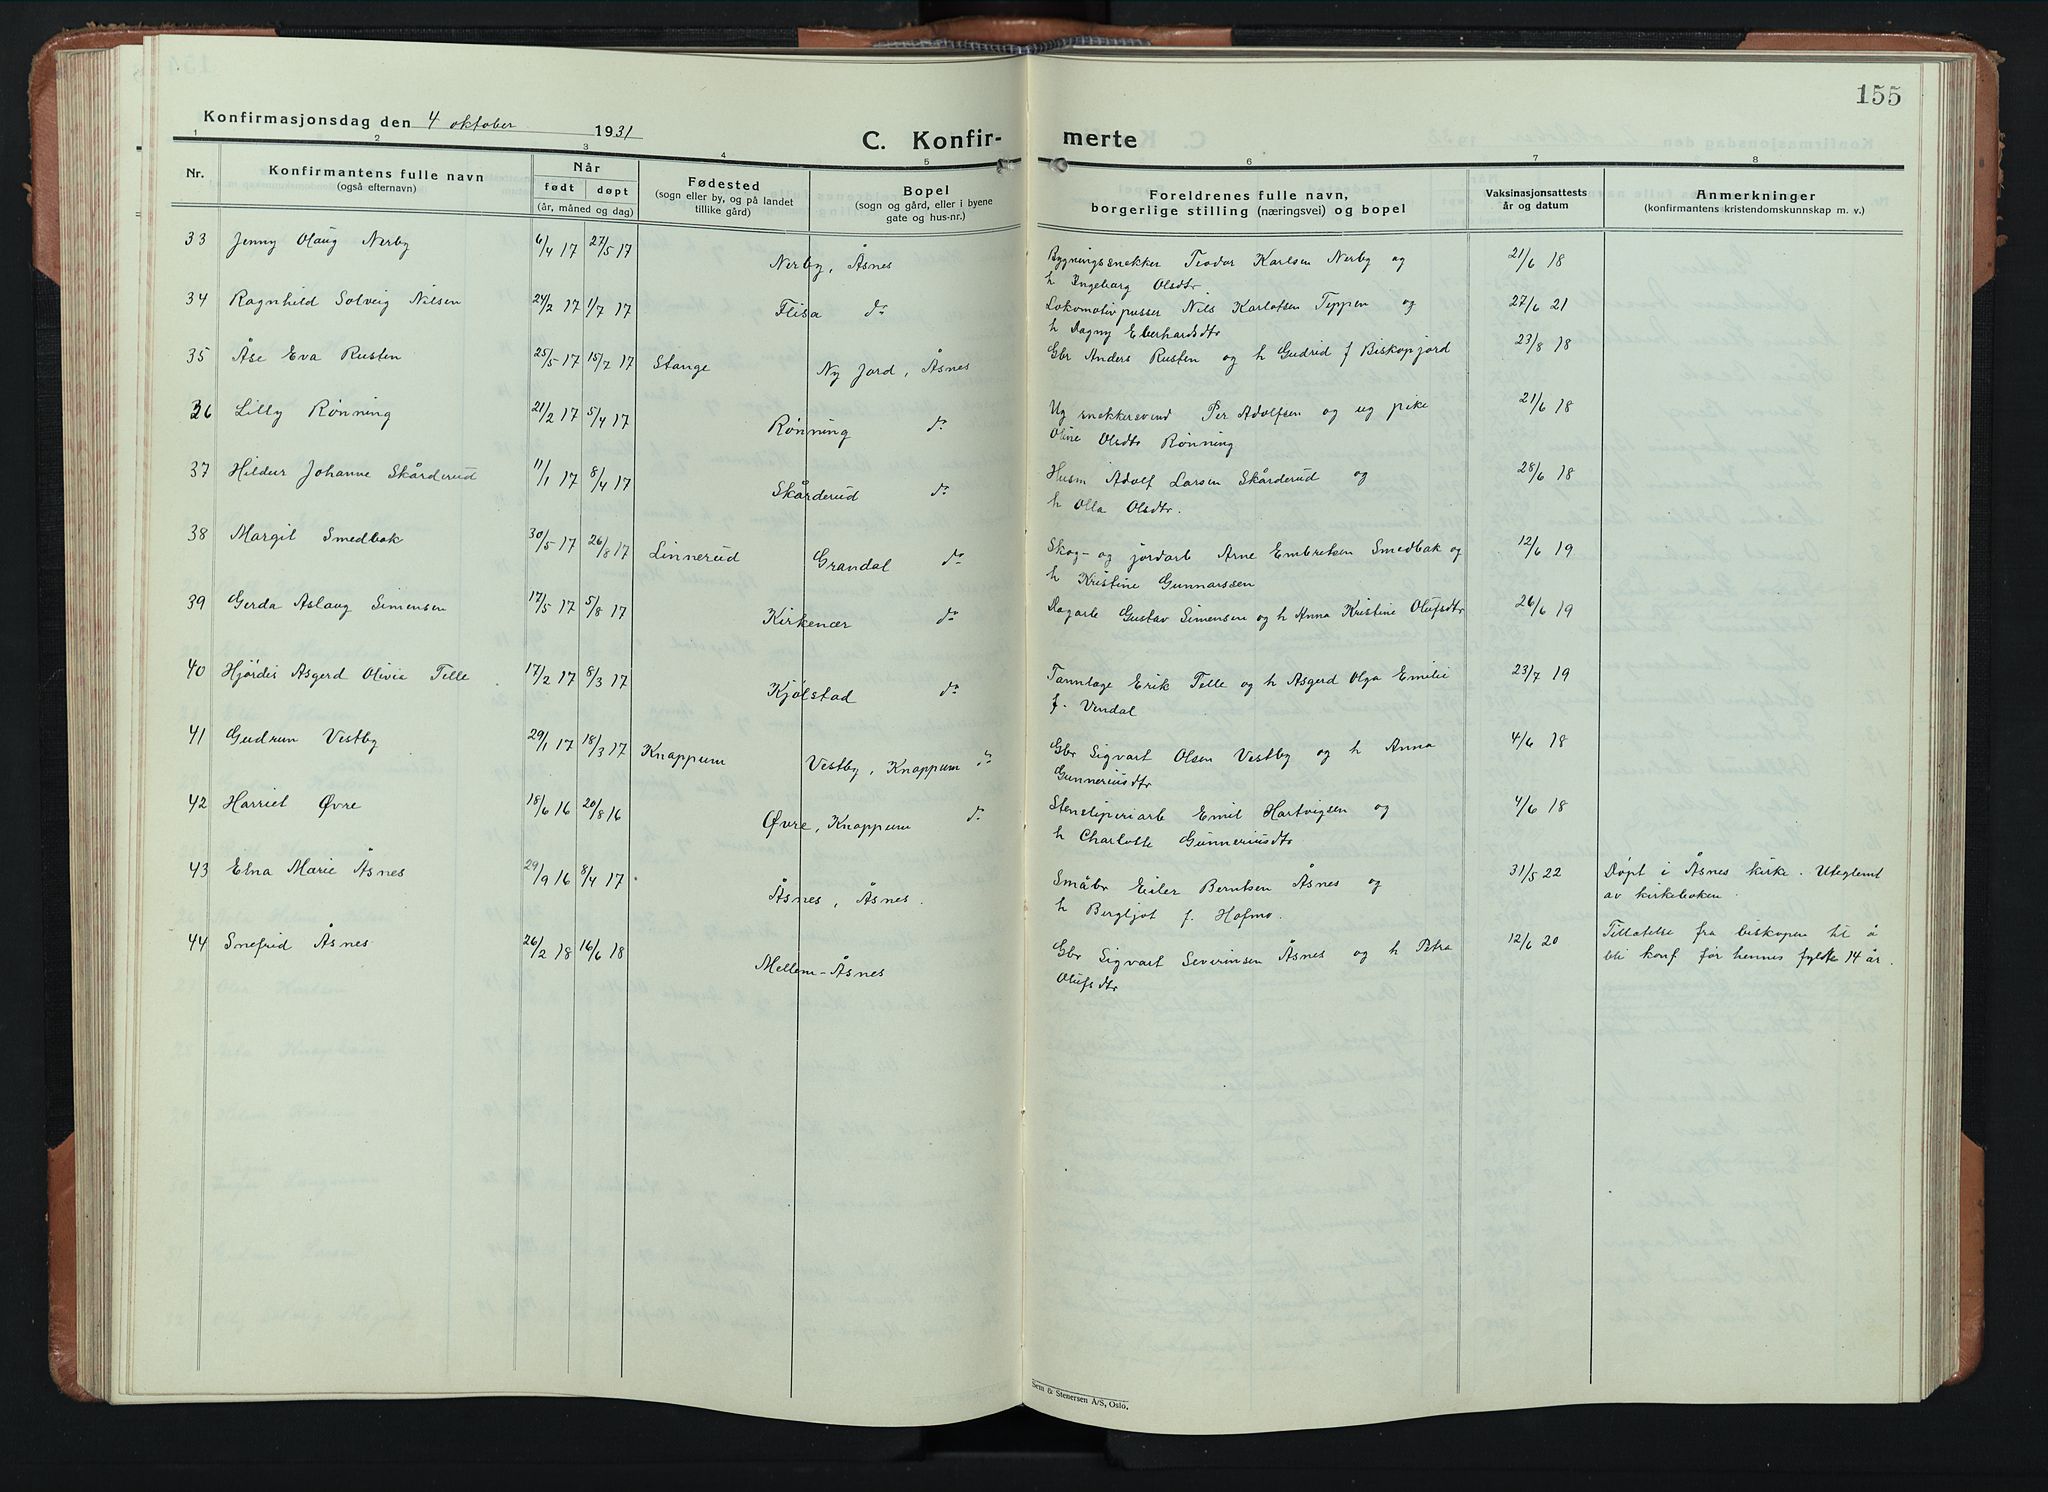 155
Konfirmasjonsdag den 4 oktober 1931
C. Konfir- merte
1 2 3 4 5 6 7 8
Nr.
Konfirmantens fulle navn
(også efternavn)
Når
født døpt
(år, måned og dag)
Fødested
(sogn eller by, og på landet
tillike gård)
Bopel
(sogn og gård, eller i byene
gate og hus-nr.)
Foreldrenes fulle navn,
borgerlige stilling (næringsvei) og bopel
Vaksinasjonsattests
år og datum
Anmerkninger
(konfirmantens kristendomskunnskap m. v.)
33 Jenny Olaug Nerby 6/4 17 27/5 17 Nerby, Åsnes Bygningssnekker Teodor Karlsen Nerby og 21/6 18
h Ingeborg Olsdtr
34 Ragnhild Solveig Nilsen 24/2 17 1/7 17 Flisa do Lokomotivpusser Nils Karlofsen Teppen og 27/6 21
h Dagny Eberhardsdtr
35 Åse Eva Rusten 25/5 17 15/7 17 Stange Ny Jord, Åsnes Gbr Anders Rusten og h Gudrid f Biskopjord 23/8 18
36 Lilly Rønning 21/2 17 5/4 17 Rønning do Ug snekkersvend Per Adolfsen og ug pike 21/6 18
Oline Olsdtr Rønning
37 Hildur Johanne Skårderud 11/1 17 8/4 17 Skårderud do Husm Adolf Larsen Skårderud og 28/6 18
h Olla Olsdtr.
38 Margit Smedbak 30/5 17 26/8 17 Linnerud Grandal do Skog- og jordarb Arne Embretsen Smedbak og 12/6 19
h Kristine Gunnarssen
39 Gerda Aslaug Simensen 17/5 17 5/8 17 Kirkenær do Dagarb Gustav Simensen og h Anna Kristine Olufsdtr 26/6 19
40 Hjördis Asgerd Olivia Telle 17/2 17 8/3 17 Kjølstad do Tannlæge Erik Telle og h Asgerd Olga Emilie 23/7 19
f. Vendal
41 Gudrun Vestby 29/1 17 18/3 17 Knappum Vestby, Knappum do Gbr Sigvart Olsen Vestby og h Anna 4/6 18
Gunneriusdtr
42 Harriet Øvre 18/6 16 20/8 16 Øvre, Knappum do Stensliperiarb Emil Hartvigsen og 4/6 18
h Charlotte Gunneriusdtr
43 Edna Marie Åsnes 29/9 16 8/4 17 Åsnes, Åsnes. Småbr Eiler Berntsen Åsnes og 31/5 22 Døpt i Åsnes kirke. Uteglemt
h Bergljot f. Hofmo. av kirkeboken.
44 Snefrid Åsnes 26/2 18 16/6 18 Mellem-Åsnes Gbr Sigvart Severinsen Åsnes og h Petra 12/6 20 Tillatelse fra biskopen til å
Olufsdtr bli konf før hennes fylte 14 år.
Sem & Stenersen A/S, Oslo.